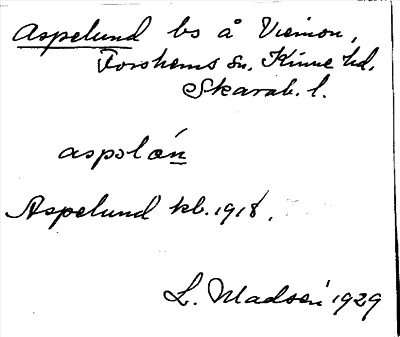 Aspelund bs å Vieinon,
Forshems sn. Kinne hd.
Skarab. l.
aspəlón
Aspelund kb. 1918.
L. Madsén 1929